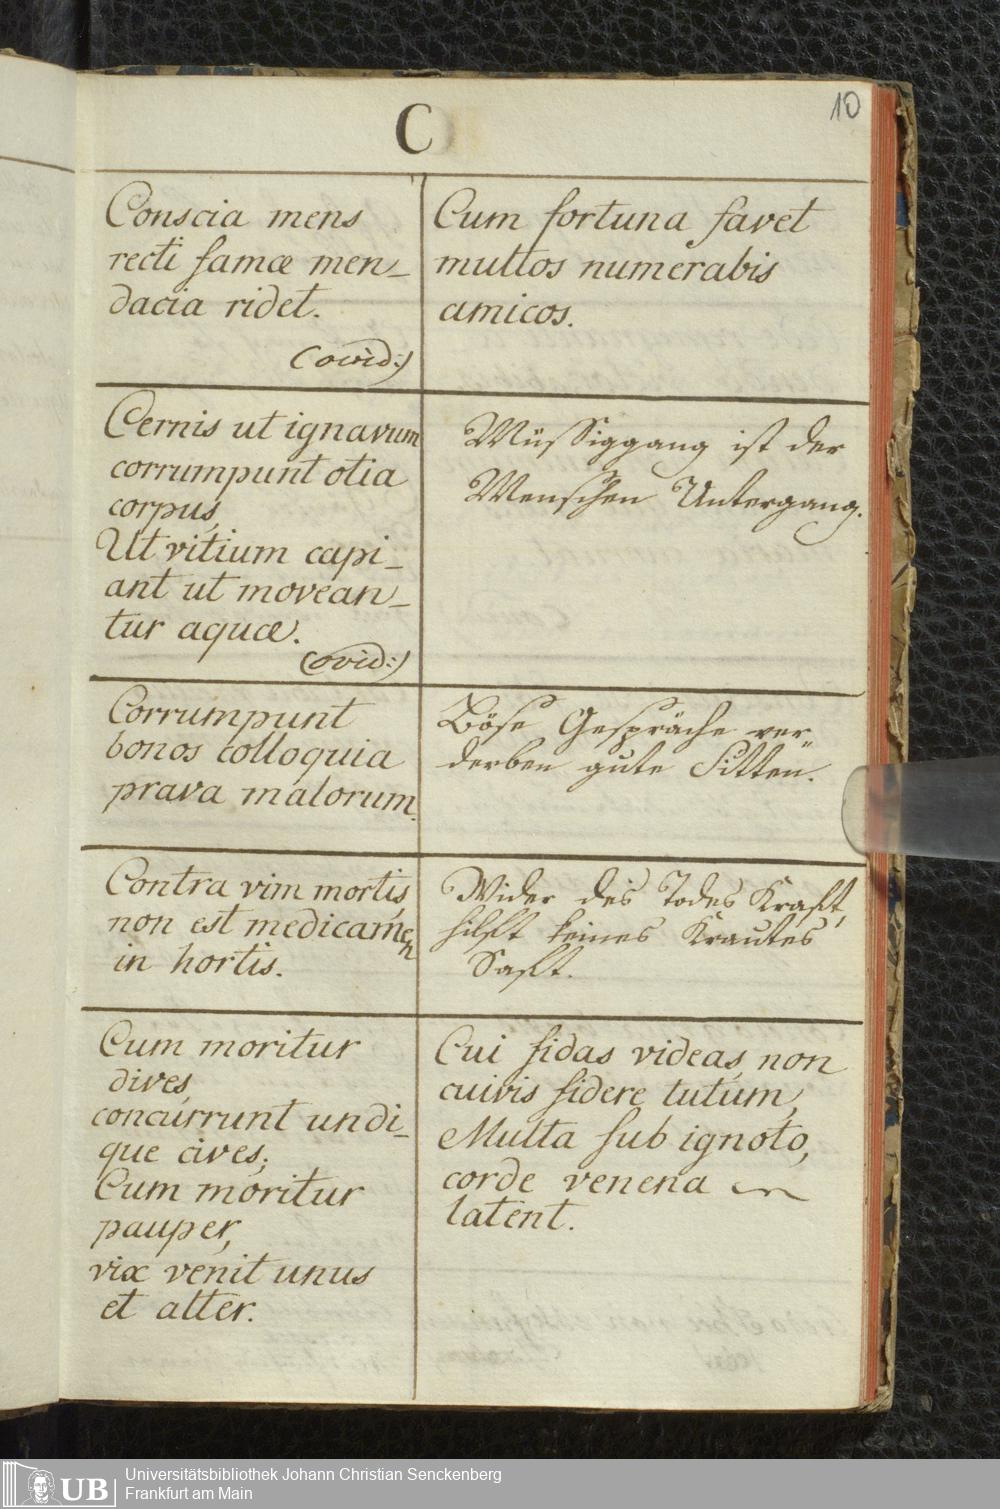 10
C
Conscia mens
recti famæ men_
dacia ridet.
(ovid:)
Cum fortuna favet
multos numerabis
amicos.
Cernis ut ignavum
corrumpunt otia
corpus,
Ut vitium capi_
ant ut movean_
tur aquæ.
(ovid:)
Müssiggang ist der
Menschen Untergang.
Corrumpunt
bonos colloquia
prava malorum.
Böse Gespräche ver„
derben gute Sitten.
Contra vim mortis,
non est medicamen
in hortis.
Wider des Todes Kraft,
hilft keines Krautes
Saft.
Cum moritur
dives,
concurrunt undi_
que cives;
Cum moritur
pauper,
vix venit unus
et alter.
Cui fidas videas, non
cuivis fidere tutum,
Multa sub ignoto,
corde venena
latent.
UB
Universitätsbibliothek Johann Christian Senckenberg
Frankfurt am Main